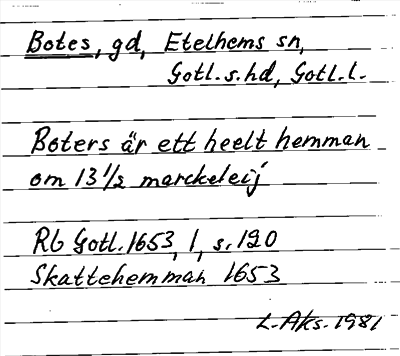 Botes, gd, Etelhems sn,
Gotl. s. hd, Gotl. l.
Boters är ett heelt hemman
om 13 1/2 marckeleij
Rb Gotl. 1653, 1, s. 190
Skattehemman 1653
L. Aks. 1981